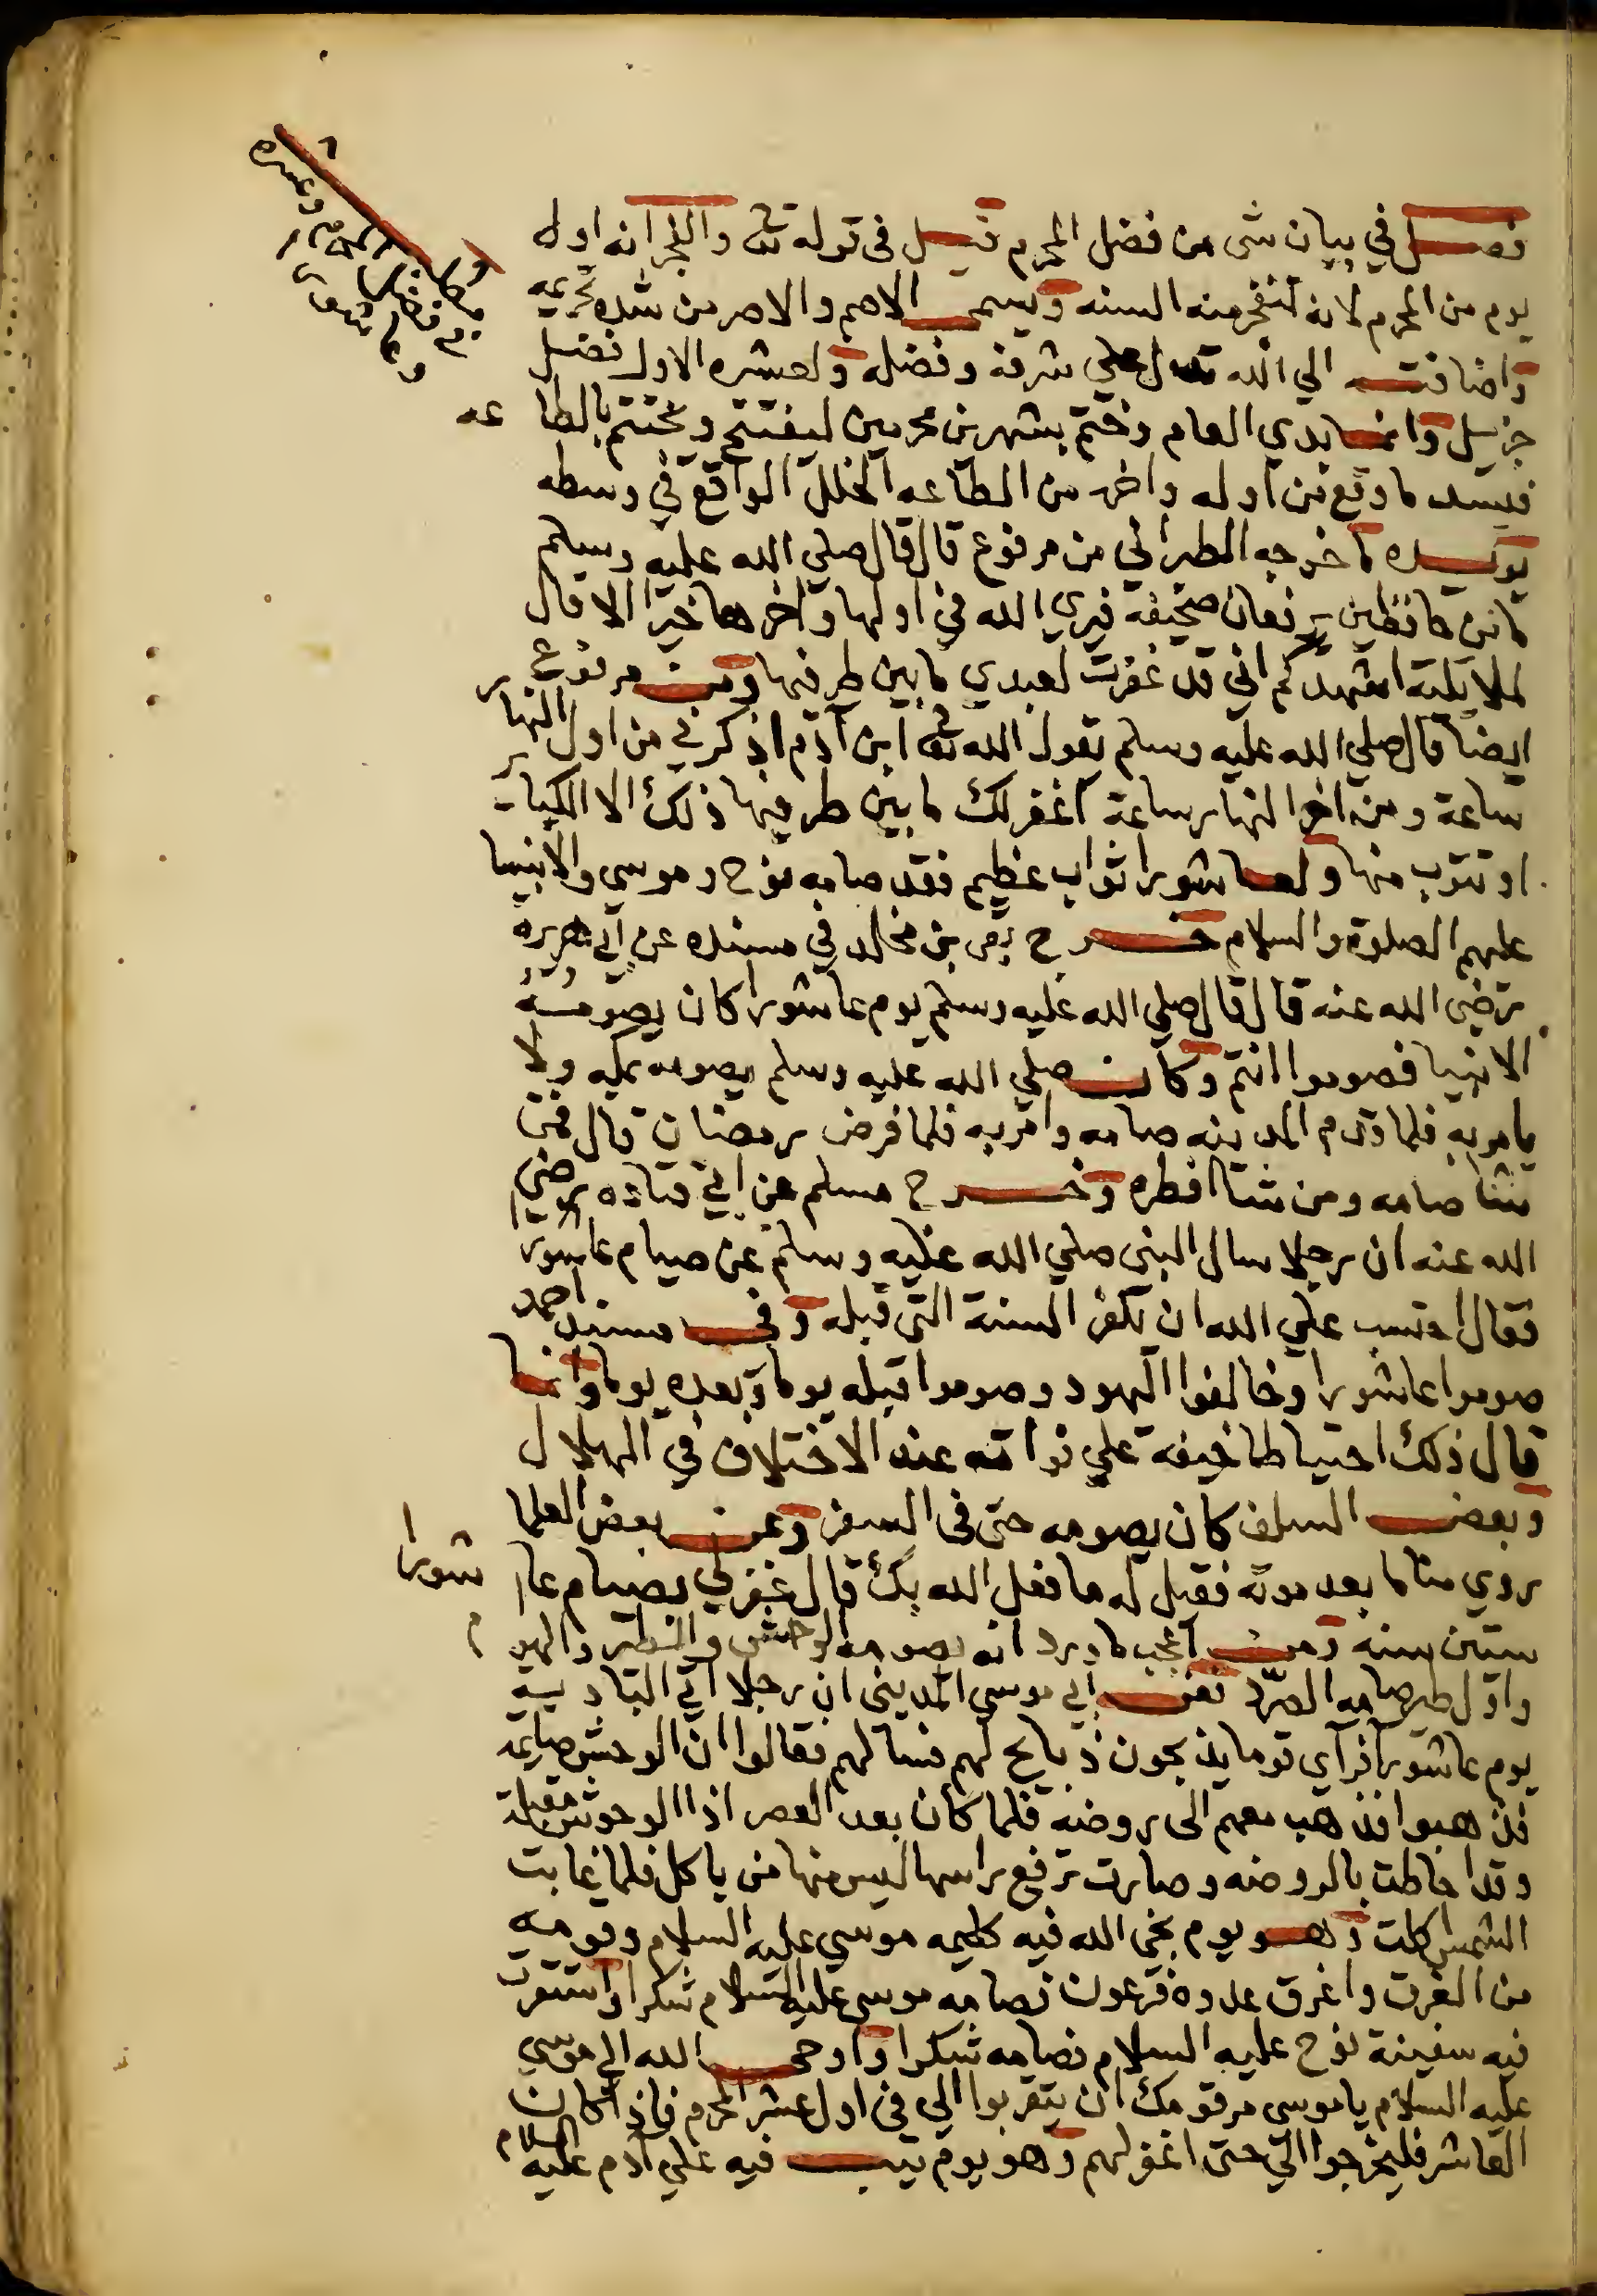 فصل في بيان شى من فضل المحرم قيل فى قوله تعالى والفجر انه اول
يوم من المحرم لانه تنفجر منه السنه ويسمى الاصم والاصر من شده تحريمه
واضافته الي الله تدل علي شرفه وفضله ولعشره الاول فضل
جزيل وانما بدي العام وختم بشهرين محرمين ليفتتح ويختتم بالطا عه
فيسد ما وقع من اوله واخره من الطاعه الخلل الواقع في وسطه
يويده ما خرجه الطبراني من مرفوع قال قال صلي الله عليه وسلم
ما من حافظين يرفعان صحيفة فيري الله في اولها واخرها خيرا الا قال
لملايكته اشهدكم اني قد غفرت لعبدي ما بين طرفيها ومن مرفوع
ايضا قال صلي الله عليه وسلم يقول الله تعالى ابن آدم اذكرني من اول النهار
ساعة ومن اخر النهار ساعة اغفر لك ما بين طرفيها ذلك الا الكباير
او تتوب منها ولعاشورا ثواب عظيم فقد صامه نوح وموسي والانبيا
عليهم الصلوة والسلام خرج بقى بن مخلد في مسنده عن ابي هريرة
رضى الله عنه قال قال صلي الله عليه وسلم يوم عاشورا كان يصومه
الانبيا فصوموا انتم وكان صلي الله عليه وسلم يصومه بمكه ولا
يامر به فلما قدم المدينه صامه وامر به فلما فرض رمضان قال من
شا صامه ومن شا افطره وخرج مسلم عن ابي قتاده رضي
الله عنه ان رجلا سال النبى صلي الله عليه وسلم عن صيام عاشورا
فقال احتسب علي الله ان يكفر السنة التى قبله وفي مسند احمد
صوموا عاشورا وخالفوا اليهود وصوموا قبله يوما وبعده يوما وانما
قال ذلك احتياطا خيفة علي فواته عند الاختلاف في الهلال
وبعض السلف كان يصومه حتى فى السفر وعن بعض العلما
روي مناما بعد موته فقيل له ما فعل الله بك قال غفر لي بصيام عا شورا
ستين سنه ومن اعجب ما ورد انه يصومه الوحش والطير والهو م
واول طير صامه الصرد فعن ابي موسي المديني ان رجلا اتي البادية
يوم عاشورا فرآي قوما يذبحون ذبايح لهم فسالهم فقالوا ان الوحش صايمة
فذهبوا فذهب معهم الى روضه فلما كان بعد العصر اذا الوحوش مقبلة
وقد احاطت بالروضه وصارت ترفع راسها ليس منها من ياكل فلما غابت
الشمس اكلت وهو يوم نجي الله فيه كليمه موسي عليه السلام وقومه
من الغرق واغرق عدوه فرعون فصامه موسى عليه السلام شكرا واستقرت
فيه سفينة نوح عليه السلام فصامه شكرا واوحى الله الي موسي
عليه السلام يا موسى مر قومك ان يتقربوا الي فى اول عشر المحرم فاذا كان
العاشر فليخرجوا الي حتى اغفر لهم وهو يوم تيب فيه علي آدم عليه السلام